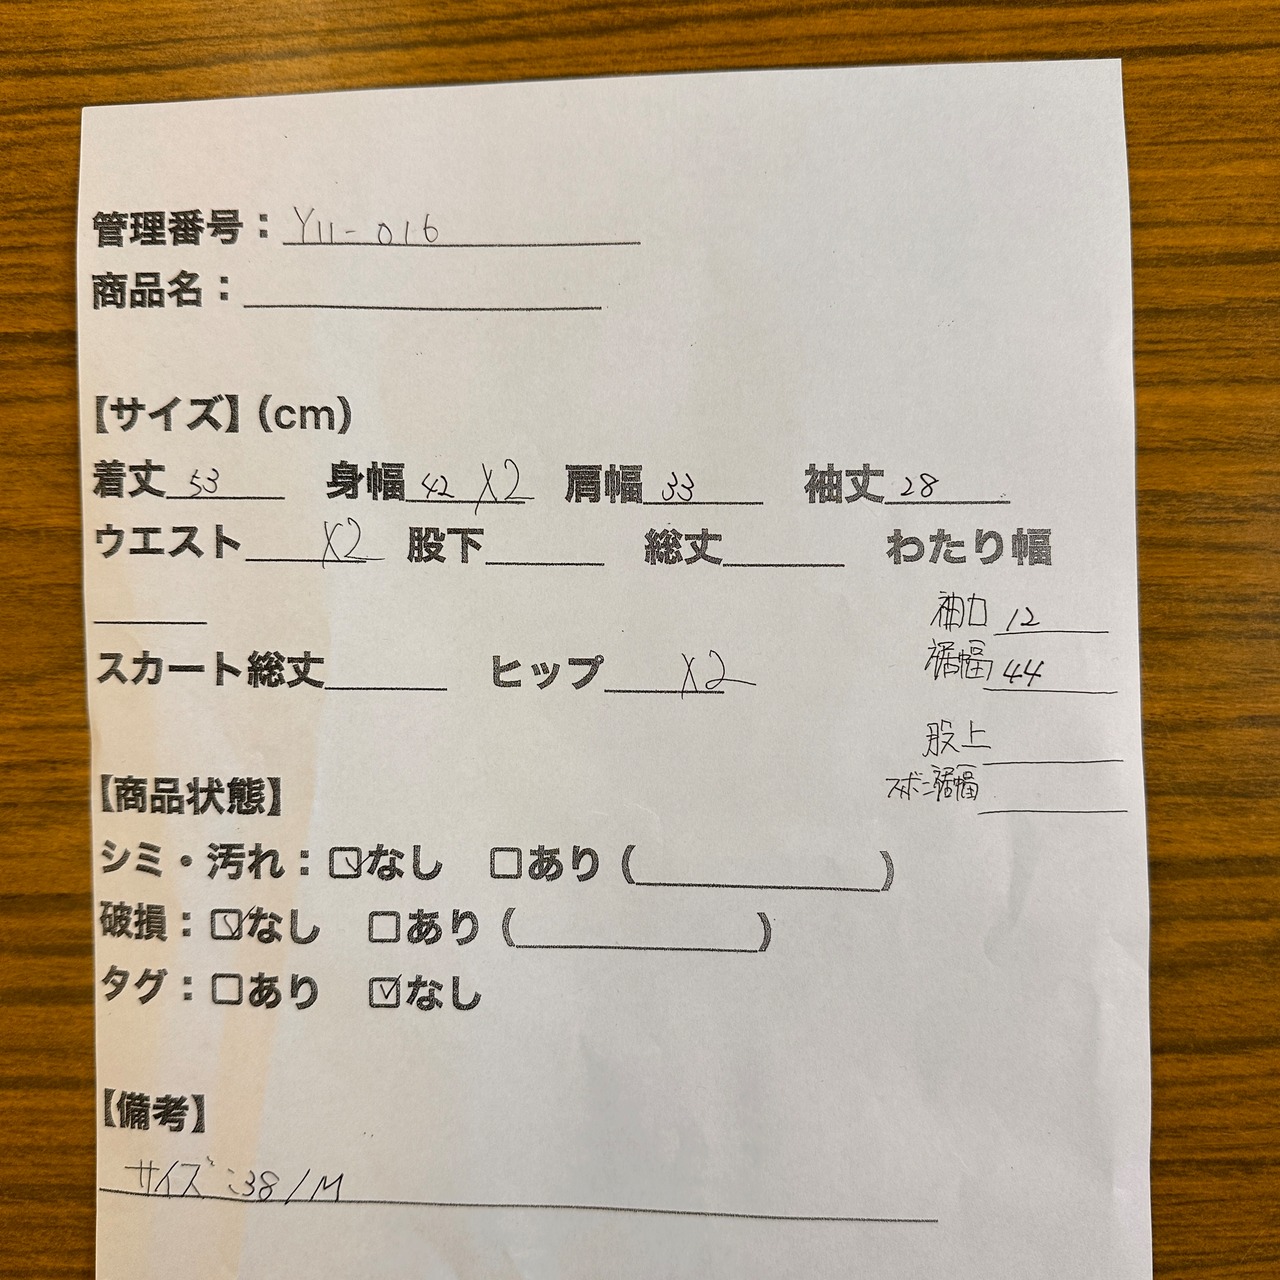 管理番号：Y11-016
商品名：
【サイズ】(cm)
着丈 53 身幅 42 X2 肩幅 33 袖丈 28
ウエスト X2 股下 総丈 わたり幅
袖口 12
裾幅 44
スカート総丈 ヒップ X2
股上
ズボン裾幅
【商品状態】
シミ・汚れ：☑なし □あり（ ）
破損：☑なし □あり（ ）
タグ：□あり ☑なし
【備考】
サイズ:38/M